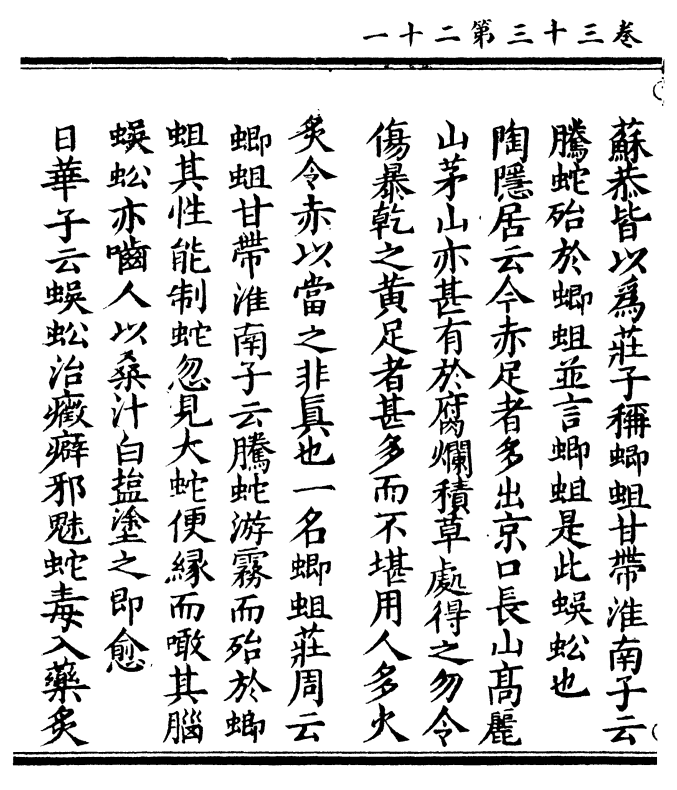 卷三十三第二十一
蘇恭皆以爲莊子稱蝍蛆甘帶淮南子云
騰蛇殆於蝍蛆並言蝍蛆是此蜈蚣也
陶隱居云今赤足者多出京口長山高麗
山茅山亦甚有於腐爛積草處得之勿令
傷暴乾之黄足者甚多而不堪用人多火
炙令赤以當之非眞也一名蝍蛆莊周云
蝍蛆甘帶淮南子云騰蛇游霧而殆於蝍
蛆其性能制蛇忽見大蛇便縁而噉其腦
蜈蚣亦嚙人以桑汁白塩塗之即愈
日華子云蜈蚣治癥癖邪魅蛇毒入藥炙